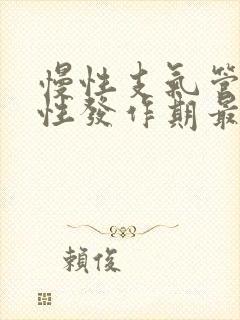 慢性支氣管
性發作期最
賴俊